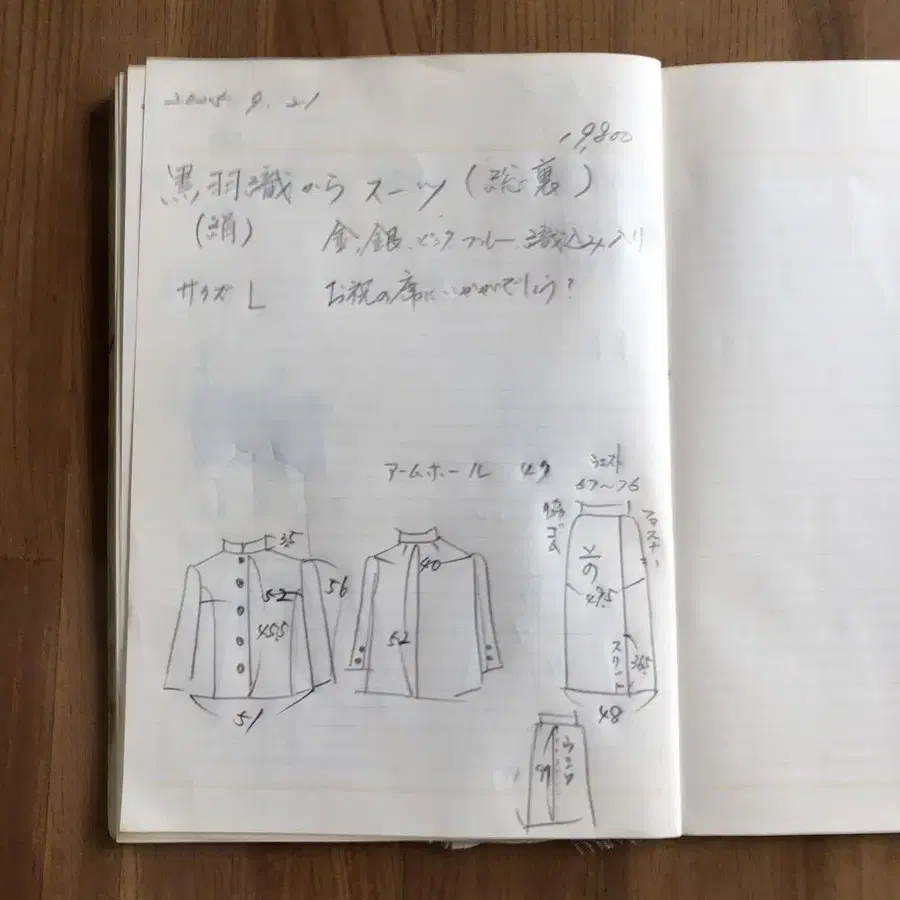 2025 9. 21
19,800
黒羽織からスーツ(総裏)
(絹) 金、銀、ピンク ブルー 織込み入り
サイズ L お祝の席にいかがでしょう?
アームホール 49
ウエスト
67~76
脇ゴム
ファスナー
3.5
52
45.5
56
51
40
52
47.5
スリット
36.5
48
ラップ